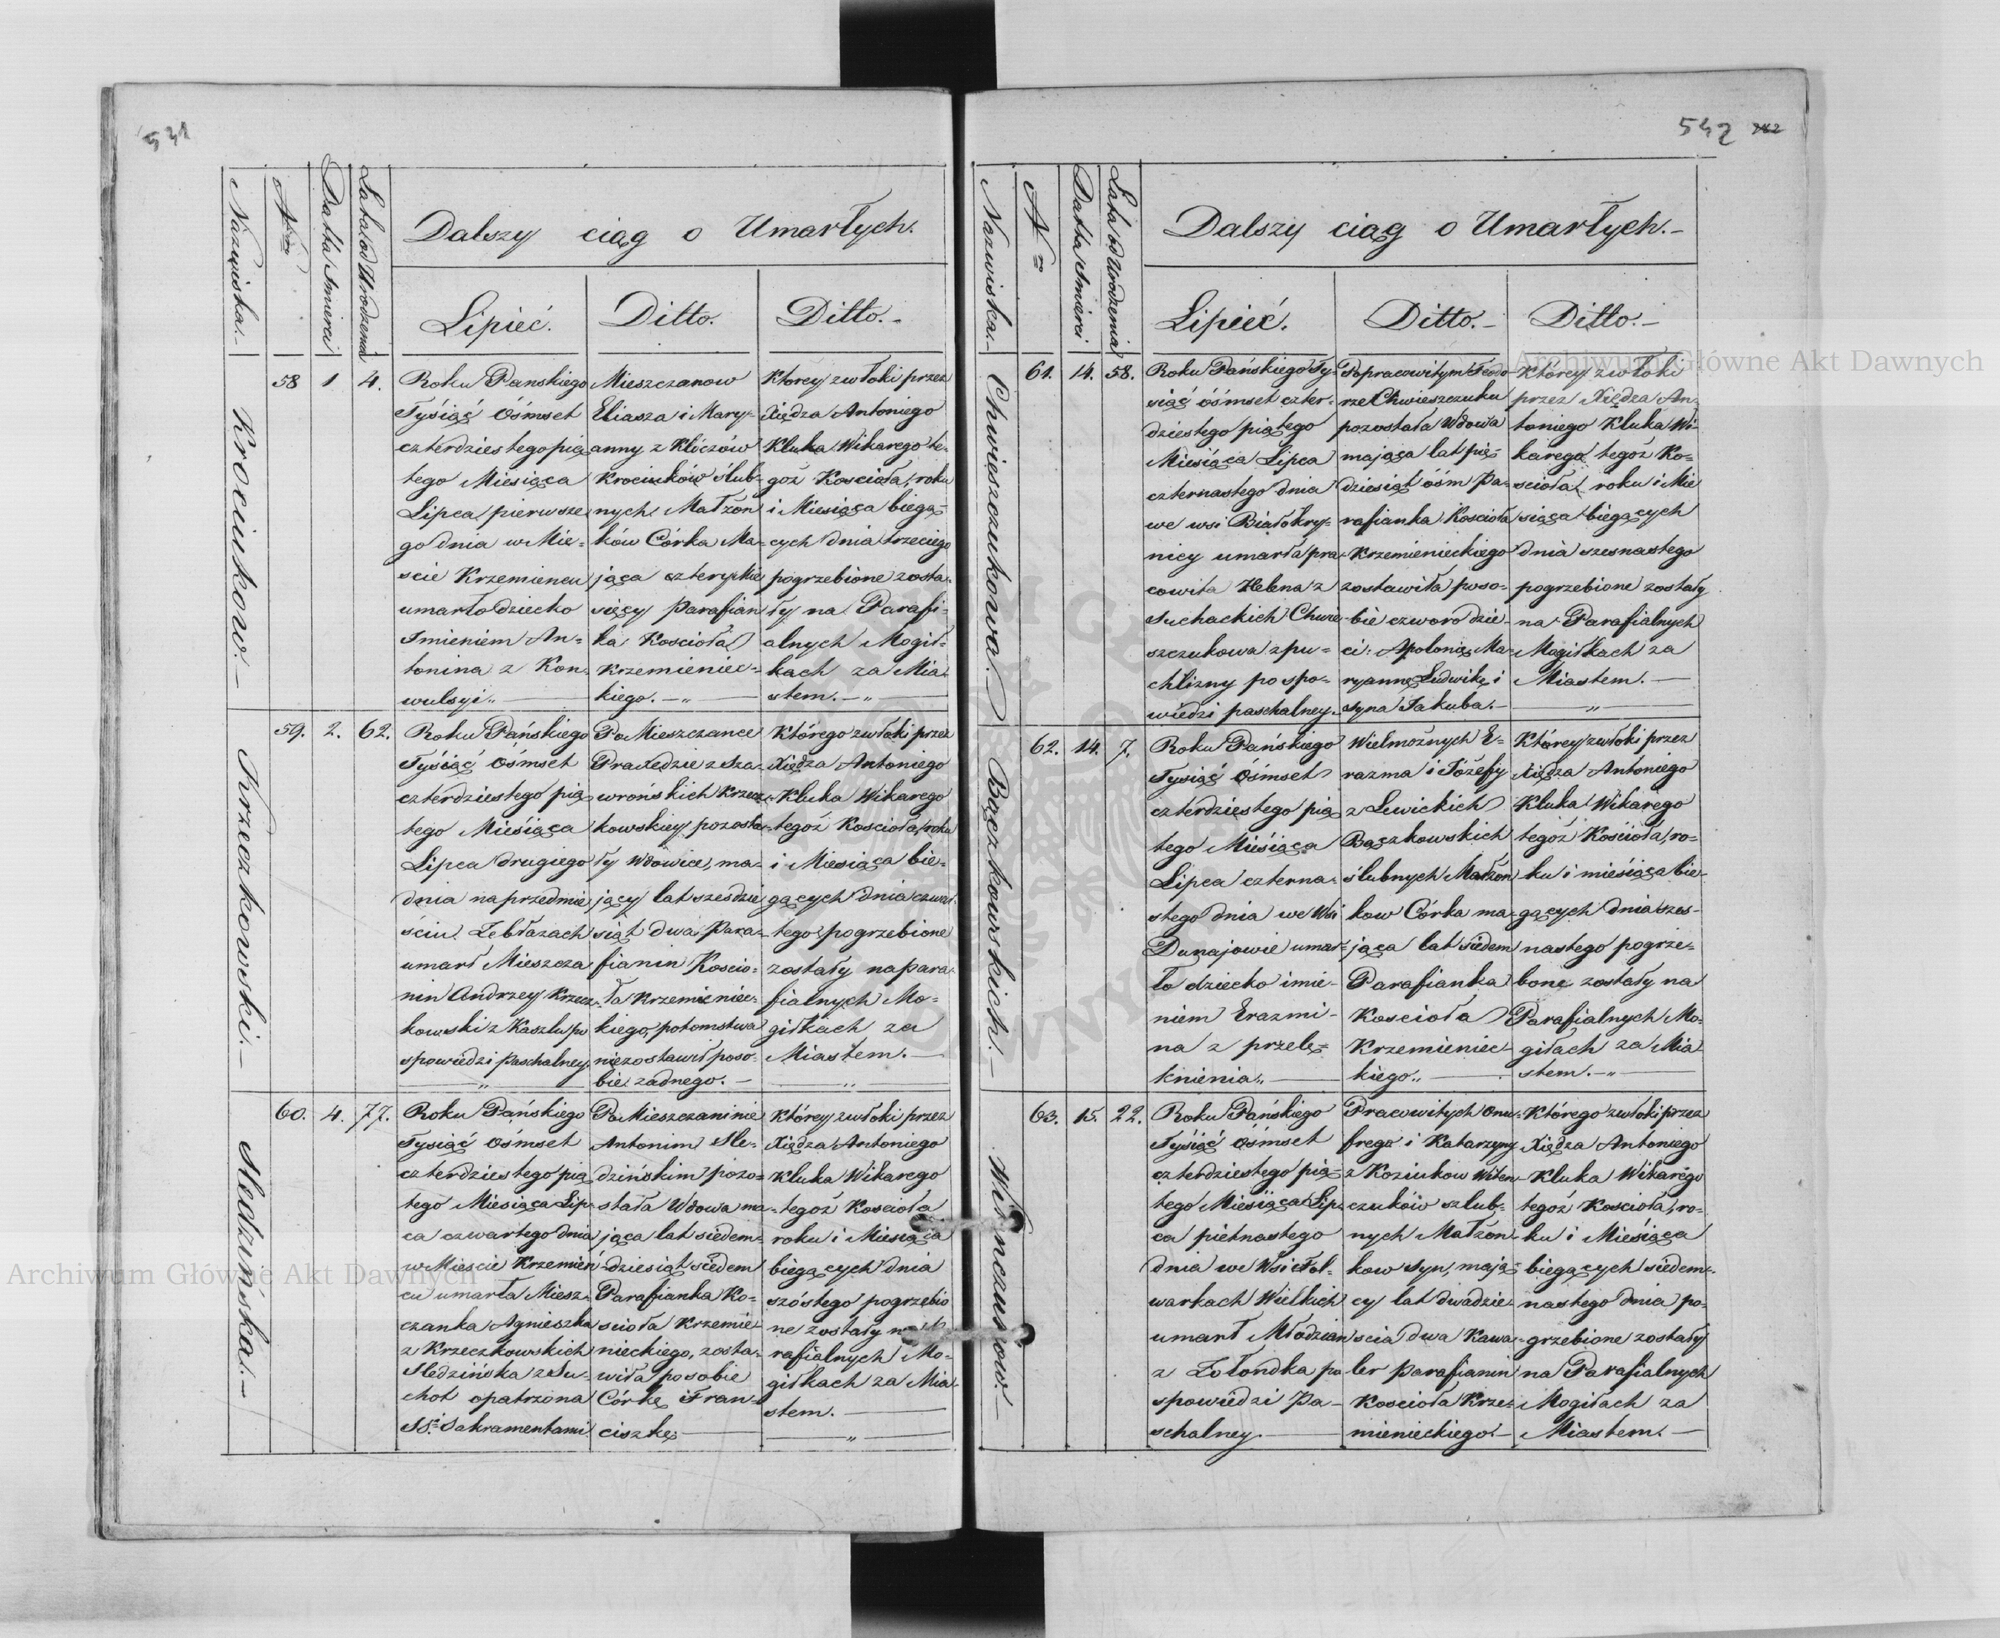 541
Nazwiska.
Nro
Datta Smierci
Lata od Urodzenia
Dalszy ciąg o Umarłych.
Lipieć.
Ditto.
Ditto.
Krociukow.
58
1
4.
Roku Pańskiego
Tysiąć Ośmset
czterdziestego pią
tego Miesiąca
Lipca pierwsze
go dnia w Mie-
scie Krzemiencu
umarło dziecko
Imieniem An-
tonina z Kon-
wulsyi
Mieszczanow
Eliasza i Mary-
anny z Kliczów
Krociuków ślub-
nych Małżon
ków Córka Ma-
jąca cztery Mie
sięcy Parafian
ka Kościoła
Krzemieniec-
kiego.
Ktorey zwłoki przez
Xiędza Antoniego
Kluka Wikarego te-
goż Kościoła, roku
i Miesiąca biegą-
cych dnia trzeciego
pogrzebione zosta-
ły na Parafi-
alnych Mogił-
kach za Mia-
stem.
Krzeczkowski.
59.
2.
62.
Roku Pańskiego
Tysiąć Ośmset
czterdziestego pią
tego Miesiąca
Lipca drugiego
dnia na przedmie
ściu Zebłazach
umarł Mieszcza
nin Andrzey Krzecz-
kowski z Kaszlu po
spowiedzi Paschalney,
Po Mieszczance
Praxedzie z Sza-
wrońskich Krzecz-
kowskiey pozosta-
ły Wdowiec, ma-
jący lat sześdzie
siąt dwa Para-
fianin Koscio-
ła Krzemieniec-
kiego, potomstwa
niezostawił poso-
bie żadnego.
Którego zwłoki przez
Xiędza Antoniego
Kluka Wikarego
tegoż Kościoła, roku
i Miesiąca bie-
gących dnia czwar
tego pogrzebione
zostały na Para-
fialnych Mo-
giłkach za
Miastem.
Sledzińska.
60.
4.
77.
Roku Pańskiego
Tysiąć Ośmset
czterdziestego pią
tego Miesiąca Lip-
ca czwartego dnia
w Mieście Krzemień-
cu umarła Miesz-
czanka Agnieszka
z Krzeczkowskich
Sledzińska z Su-
chot opatrzona
SS. Sakramentami
Po Mieszczaninie
Antonim Sle-
dzińskim pozo-
stała Wdowa ma-
jąca lat siedem-
dziesiąt siedem
Parafianka Ko-
scioła Krzemie-
nieckiego, zosta-
wiła posobie
Córkę Fran-
ciszkę
Którey zwłoki przez
Xiędza Antoniego
Kluka Wikarego
tegoż Kościoła
roku i Miesiąca
biegących dnia
szóstego pogrzebio
ne zostały
rafialnych Mo-
giłkach za Mia-
stem.
542
Nazwiska.
Nro
Datta Smierci
Lata od Urodzenia
Dalszy ciąg o Umarłych.
Lipieć.
Ditto.
Ditto.
Chwieszczukowa.
61.
14.
58.
Roku Pańskiego Ty-
siąć óśmset czter-
dziestego piątego
Miesiąca Lipca
czternastego dnia
we wsi Białokry-
nicy umarła pra-
cowita Helena z
Suchackich Chwie
szczukowa z pu-
chlizny po spo-
wiedzi paschalney.
Po pracowitym Teodo-
rze Chwieszczuku
pozostała Wdowa
mająca lat pię-
dziesiąt óśm Pa-
rafianka Kościoła
Krzemienieckiego
zostawiła poso-
bie czworo dzie-
ci: Apolonię Ma-
ryannę Ludwikę i
Syna Jakuba.
Którey zwłoki
przez Xiędza An-
toniego Kluka Wi-
karego tegoż Ko-
scioła, roku i Mie
siąca biegących
dnia szesnastego
pogrzebione zostały
na Parafialnych
Mogiłkach za
Miastem.
Bączkowskich.
62.
14.
7.
Roku Pańskiego
Tysiąć óśmset
czterdziestego pią
tego Miesiąca
Lipca czterna-
stego dnia we Wsi
Dunajowie umar-
ło dziecko imie-
niem Erazmi-
na z przelę-
knienia
Wielmożnych E-
razma i Józefy
z Lewickich
Bączkowskich
slubnych Małżon
kow Córka ma-
jąca lat siedem
Parafianka
Kościoła
Krzemieniec-
kiego
Którey zwłoki przez
Xiędza Antoniego
Kluka Wikarego
tegoż Kościoła, ro-
ku i miesiąca bie-
gących dnia szes-
nastego pogrze-
bone zostały na
Parafialnych Mo-
giłach za Mia-
stem.
Witenczukow.
63.
15.
22.
Roku Pańskiego
Tysiąć Ośmset
czterdziestego pią-
tego Miesiąca Lip-
ca pietnastego
dnia we Wsi Foł-
warkach Wielkich
umarł Młodzian
z Zołondka po
spowiedzi Pa-
schalney.
Pracowitych Onu-
frego i Katarzyny
z Koziukow Witen-
czuków szlub-
nych Małżon
kow Syn, mają-
cy lat dwadzie-
scia dwa Kawa-
ler Parafianin
Kościoła Krze-
mienieckiego.
Którego zwłoki przez
Xiędza Antoniego
Kluka Wikarego
tegoż Kościoła, ro-
ku i Miesiąca
biegących siedem-
nastego dnia po-
grzebione zostały
na Parafialnych
Mogiłach za
Miastem.
Archiwum Główne Akt Dawnych
Archiwum Główne Akt Dawnych